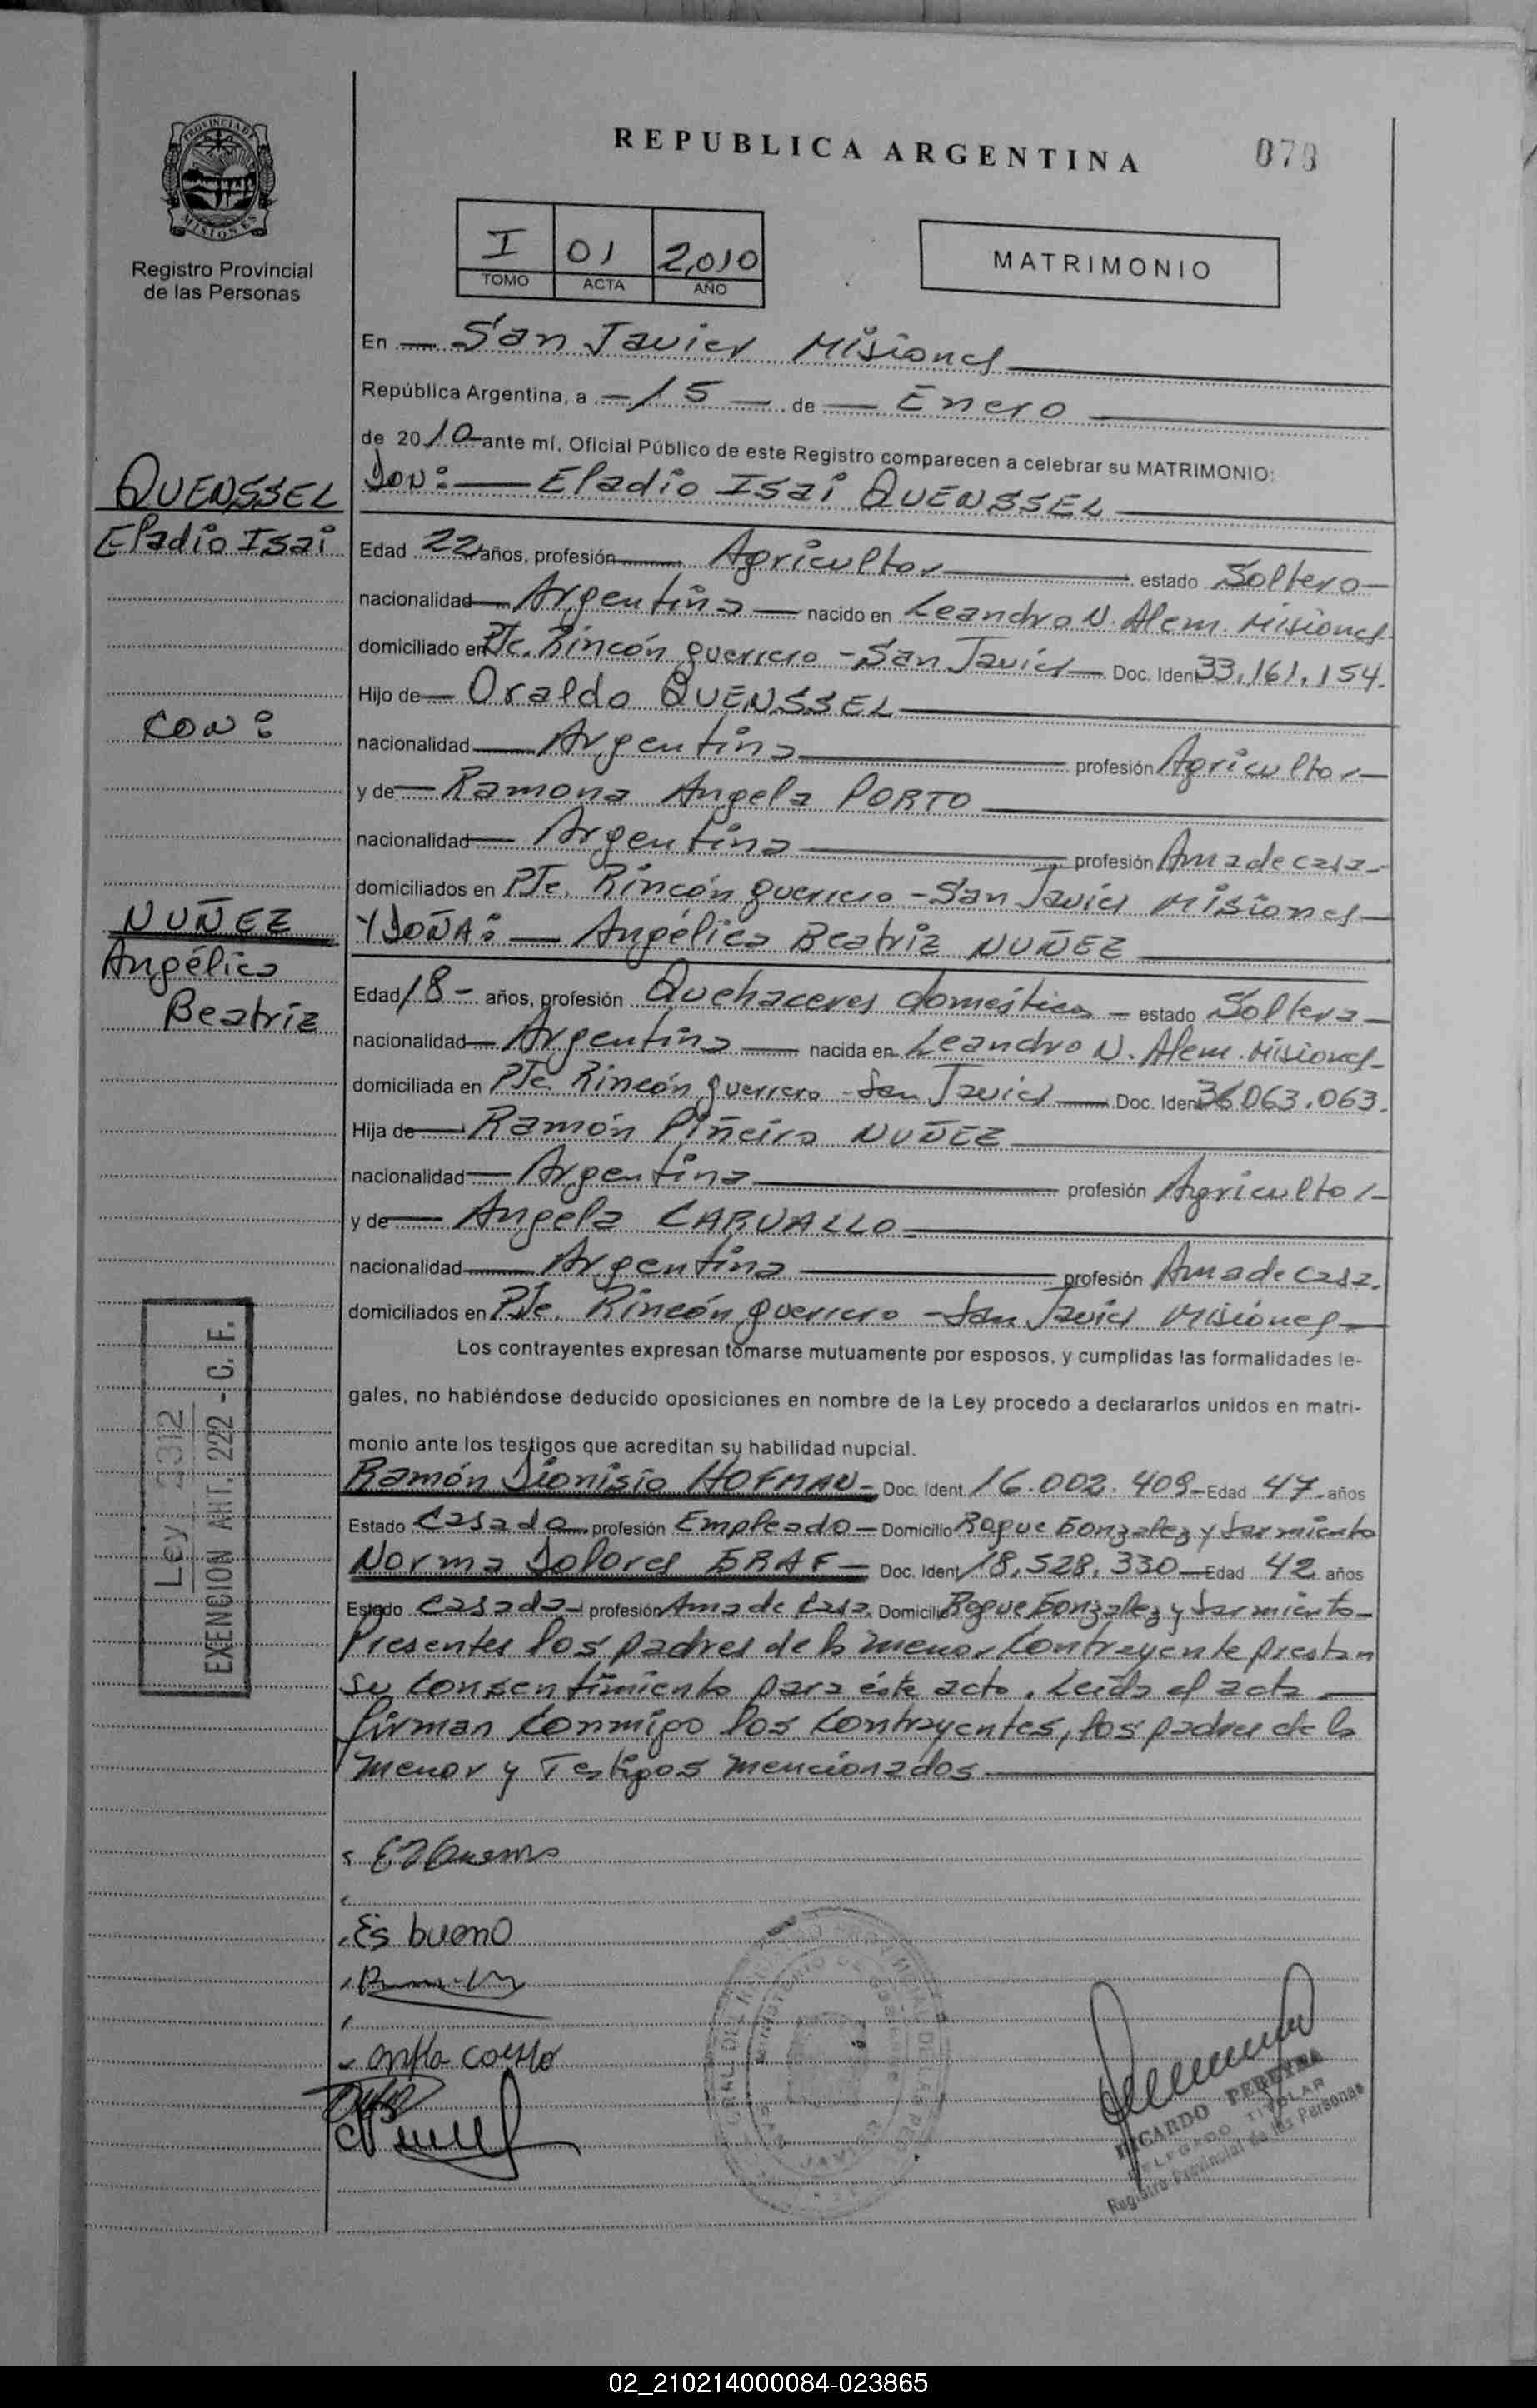 REPUBLICA ARGENTINA
PROVINCIA DE
MISIONES
Registro Provincial
de las Personas
I 01 2,010
TOMO ACTA AÑO
MATRIMONIO
En San Javier Misiones
República Argentina, a 15 de Enero
de 2010 ante mí, Oficial Público de este Registro comparecen a celebrar su MATRIMONIO:
QUENSSEL
Eladio Isai
DON: Eladio Isai QUENSSEL
Edad 22 años, profesión Agricultor estado Soltero
nacionalidad Argentina nacido en Leandro N. Alem. Misiones
domiciliado en Pje. Rincón guerrero - San Javier Doc. Ident 33.161.154.
Hijo de Oraldo QUENSSEL
CON:
nacionalidad Argentina profesión Agricultor
y de Ramona Angela PORTO
nacionalidad Argentina profesión Ama de casa
domiciliados en PJe. Rincón guerrero - San Javier Misiones
NUÑEZ
Angélica
Beatriz
Y DOÑA: Angélica Beatriz NUÑEZ
Edad 18 - años, profesión Quehaceres domésticos - estado Soltera
nacionalidad Argentina nacida en Leandro N. Alem. Misiones
domiciliada en PJe. Rincón guerrero - San Javier Doc. Ident 36.063.063.
Hija de Ramón Piñeiro NUÑEZ
nacionalidad Argentina profesión Agricultor
y de Angela CARVALLO
nacionalidad Argentina profesión Ama de casa.
domiciliados en PJe. Rincón guerrero - San Javier Misiones
Los contrayentes expresan tomarse mutuamente por esposos, y cumplidas las formalidades le-
gales, no habiéndose deducido oposiciones en nombre de la Ley procedo a declararlos unidos en matri-
monio ante los testigos que acreditan su habilidad nupcial.
Ramón Dionisio HOFMAN - Doc. Ident. 16.002.409 - Edad 47 años
Estado Casado profesión Empleado - Domicilio Roque Gonzalez y Sarmiento
Norma Dolores GRAF - Doc. Ident 18.528.330 - Edad 42 años
Estado Casada profesión Ama de Casa. Domicilio Roque Gonzalez y Sarmiento
Presentes los padres de la menor Contrayente prestan
su consentimiento para éste acto. Leída el acta
firman conmigo los Contrayentes, los padres de la
menor y Testigos mencionados
Ley 2312
EXENCION ART. 222 - C. F.
Es bueno
RICARDO PEREYRA
DELEGADO TITULAR
Registro Provincial de las Personas
02_210214000084-023865